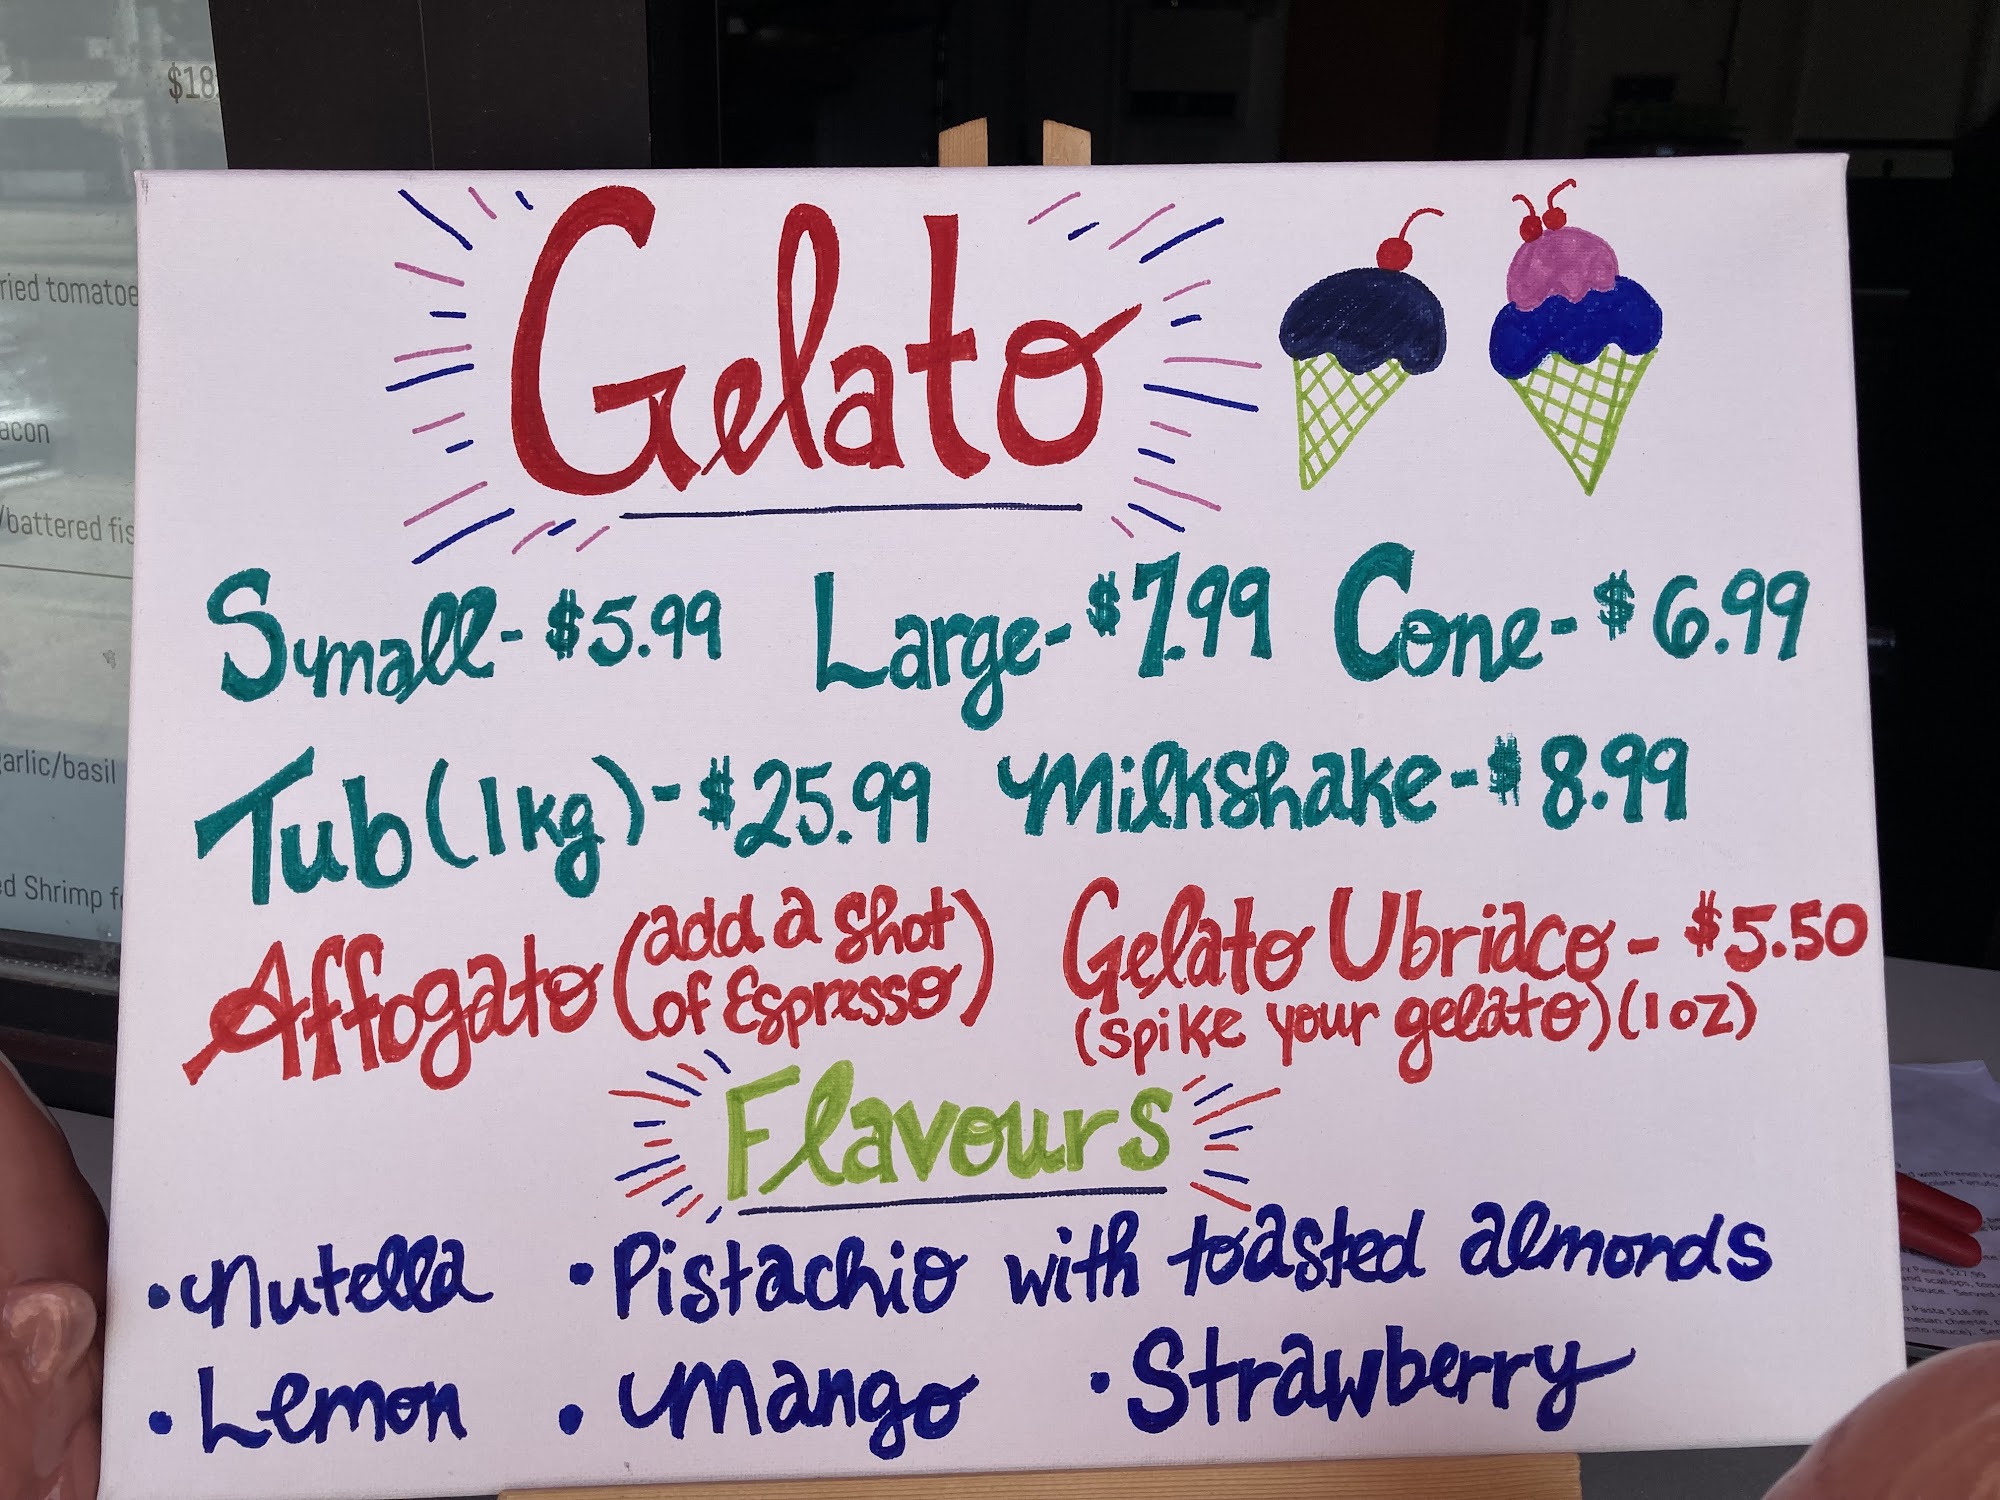 Gelato
Small - $5.99 Large - $7.99 Cone - $6.99
Tub (1kg) - $25.99 Milkshake - $8.99
Affogato (add a shot of Espresso) Gelato Ubriaco - $5.50
(spike your gelato) (1oz)
Flavours
• Nutella • Pistachio with toasted almonds
• Lemon • Mango • Strawberry
$18
/battered
garlic/basil
Shrimp